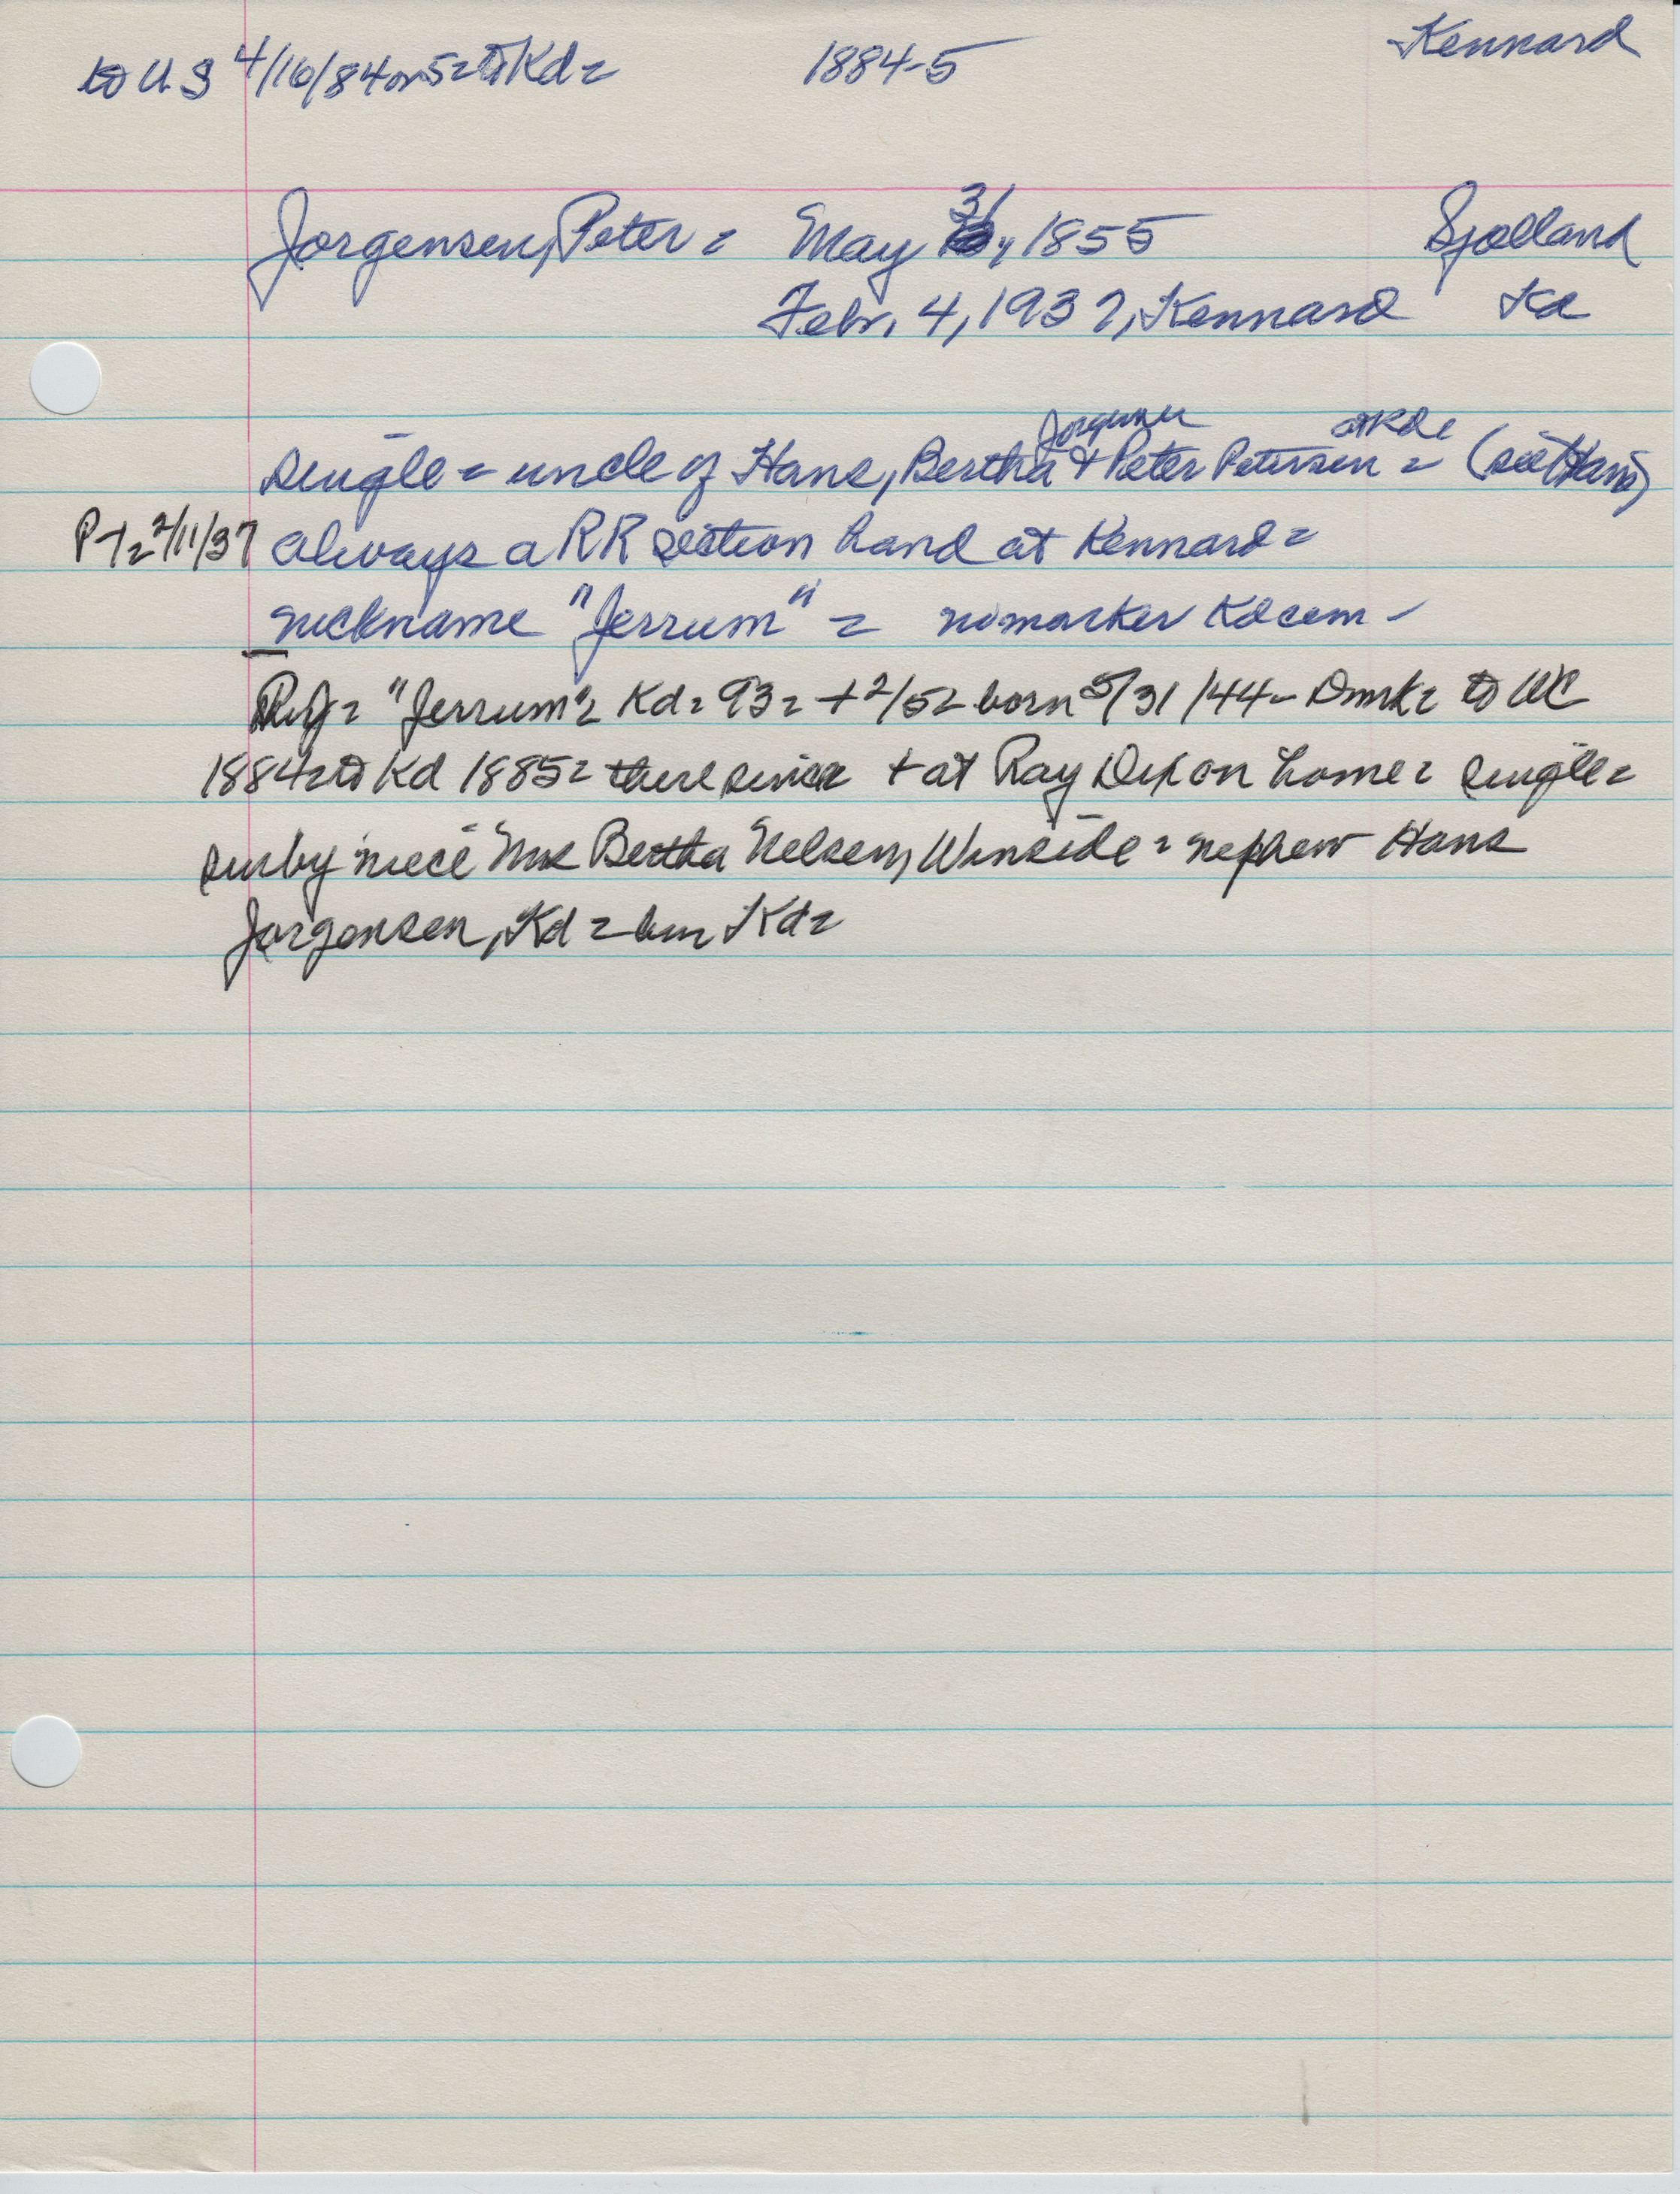 to US 4/16/84 or 5 = to Kd = 1884-5 Kennard
Jorgensen, Peter = May 31, 1855 Sjælland
Febr. 4, 1937, Kennard Kd
Jorgensen at Kd =
single = uncle of Hans, Bertha & Peter Petersen = (see Hans)
P-T = 2/11/37 always a RR section hand at Kennard =
nickname "Jerrum" = no marker Kd cem -
"Jerrum" = Kd = 93 = + 2/5 = born 5/31/44 - Dmk = to WC
1884 = to Kd 1885 = there since + at Ray Dixon home = single =
sur by niece Mrs Bertha Nelsen, Winside = nephew Hans
Jorgensen, Kd = bur Kd =